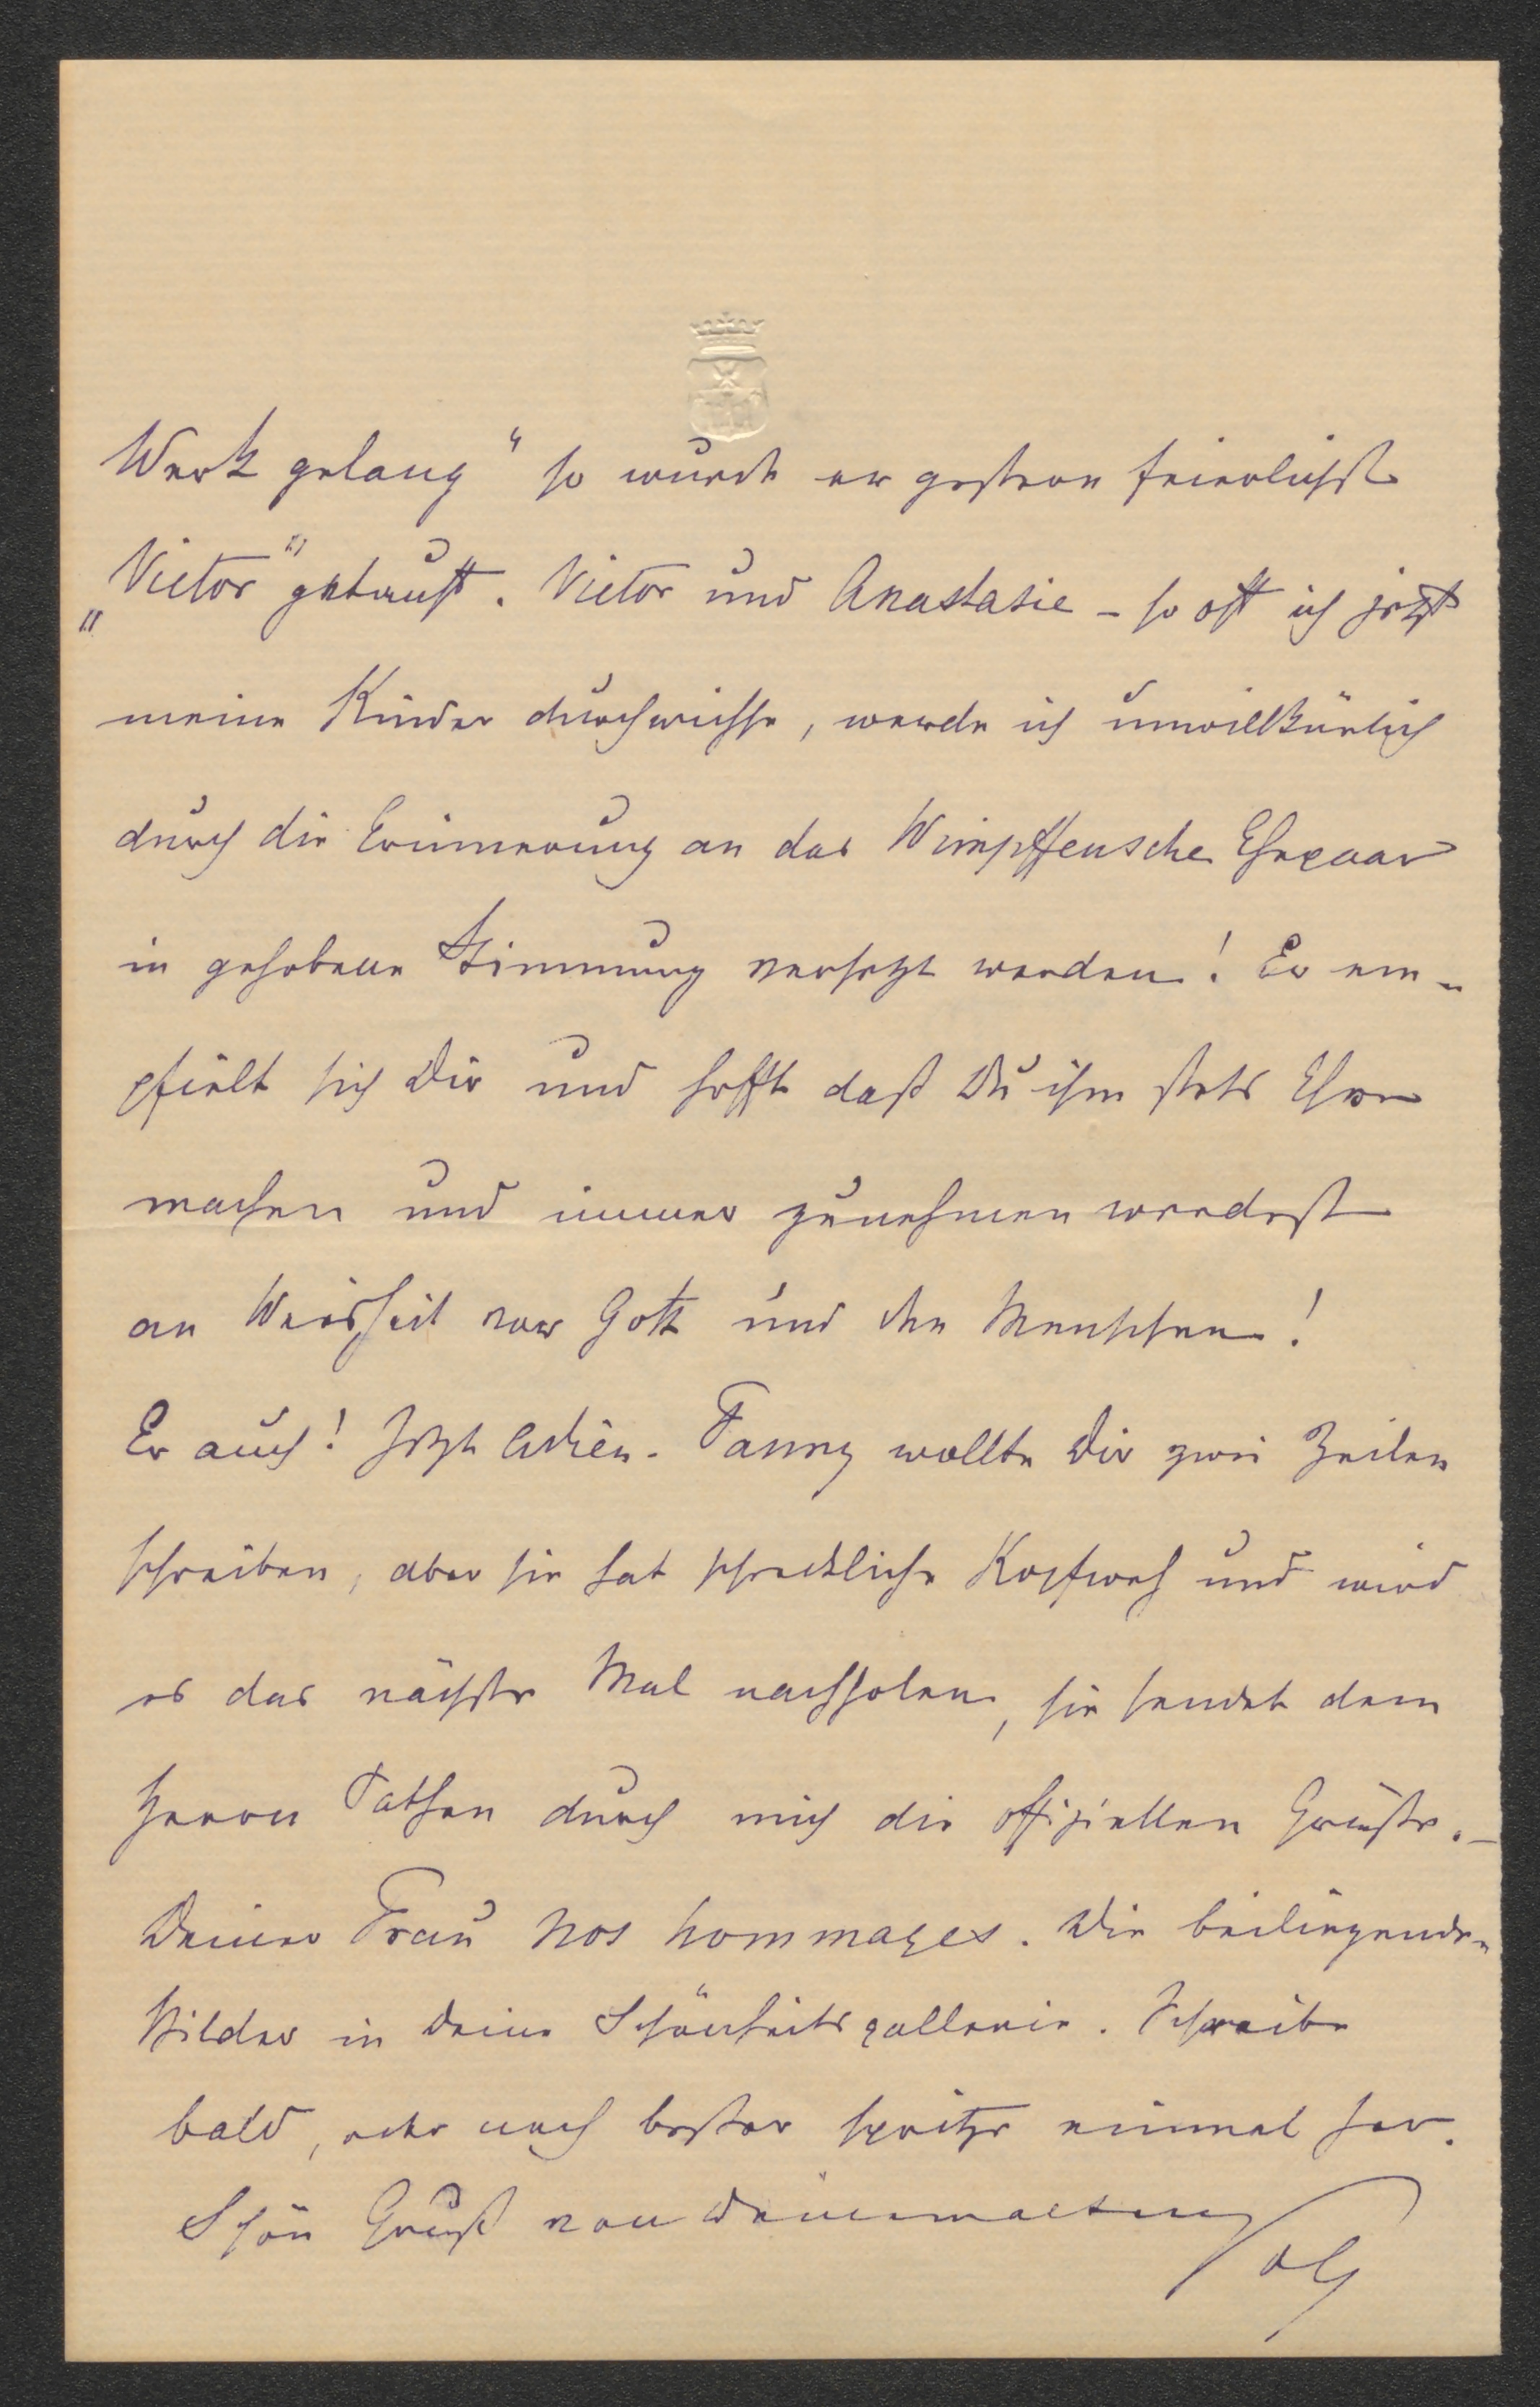 Werk gelang“ so wurde er gestern feierlichst
„Victor“ getauft. Victor und Anastasie – so oft ich jetzt
meine Kinder durchwichse, werde ich unwillkürlich
durch die Erinnerung an das Wimpffensche Ehepaar
in gehobene Stimmung versetzt werden! Er em-
pfielt sich Dir und hofft daß Du ihm stets Ehre
machen und immer zunehmen werdest
an Weisheit vor Gott und den Menschen!
Er auch! Jetzt Adieu. Fanny wollte Dir zwei Zeilen
schreiben, aber sie hat schreckliche Kopfweh und wird
es das nächste Mal nachholen, sie sendet dem
Herrn Pathen durch mich die offiziellen Grüße. –
Deiner Frau nos hommages. Die beiliegenden
Bilder in Deine Schönheitsgallerie. Schreibe
bald, oder noch besser spritze einmal her.
Schön Gruß von Deinem alten